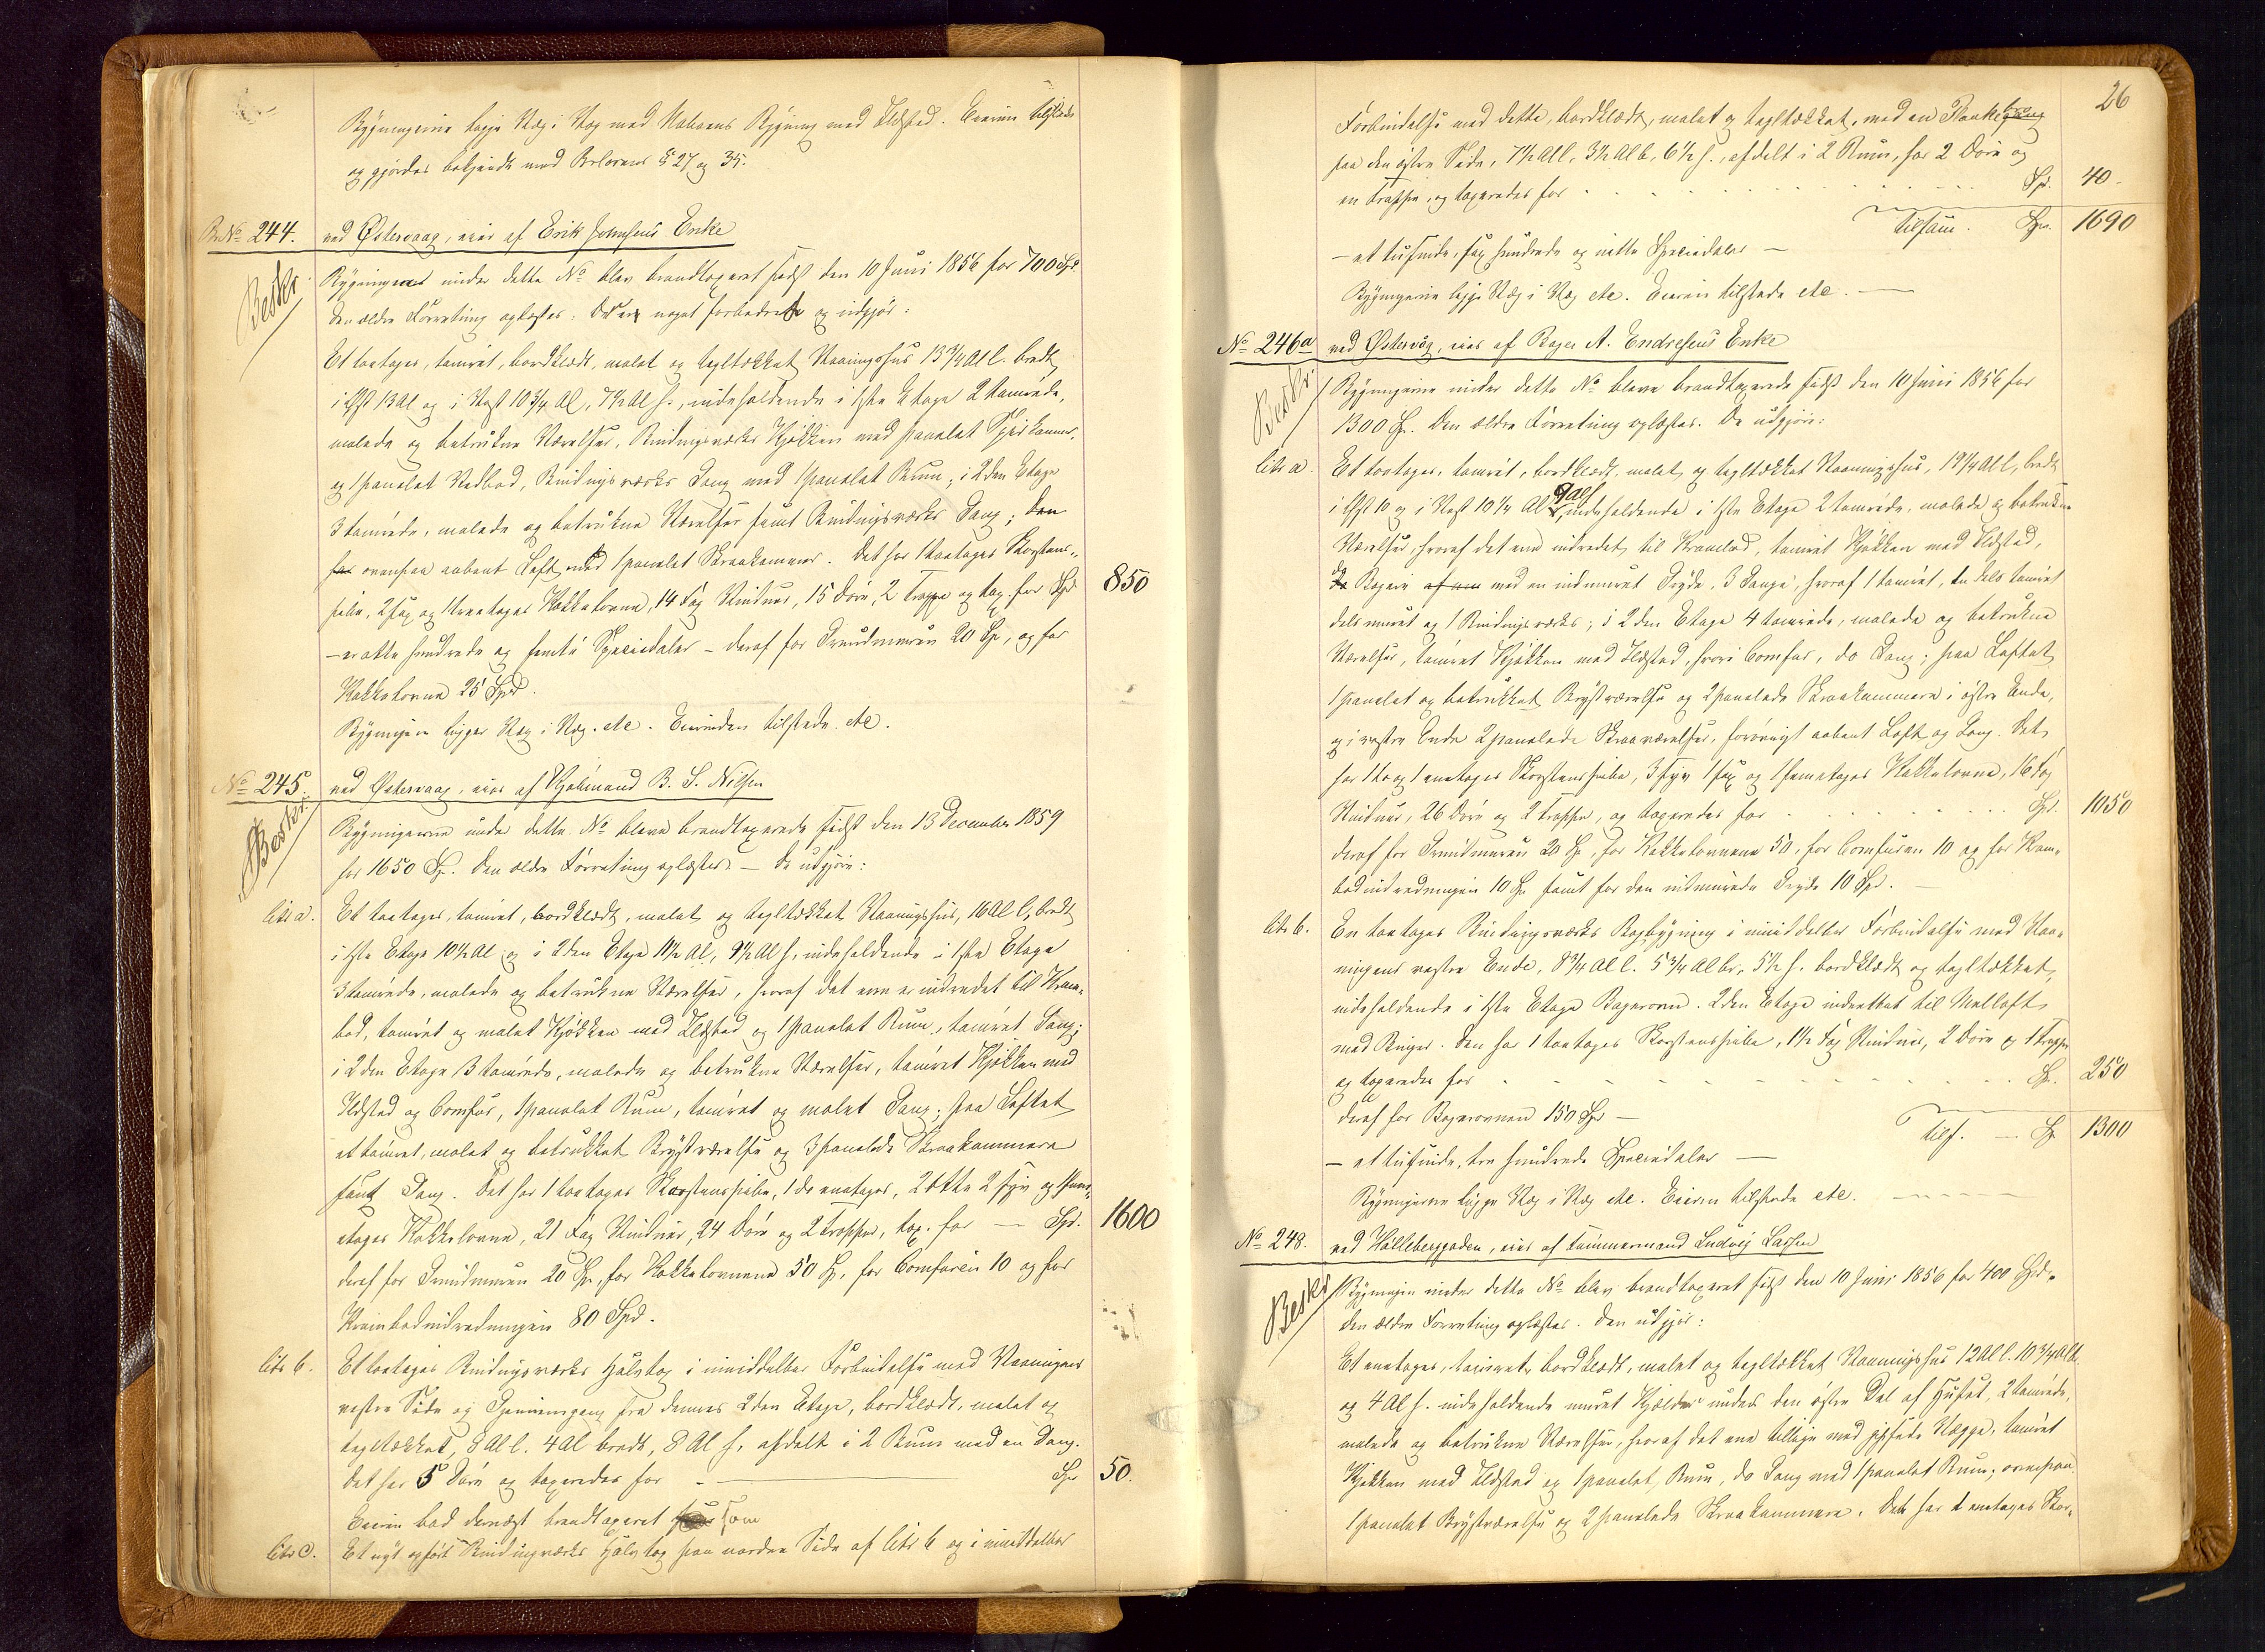 Bygningerne ligge Væg i Væg med Naboens Bygning med Ildsted. Eieren tilstede
og gjordes bekjendt med Brlovens § 27 og 35.
BrNo 244. ved Østervaag, eies af Erik Johnsens Enke
Beskr.
Bygningen under dette No blev brandtaxeret sidst den 10 Juni 1856 for 700 Spd.
den ældre Forretning oplæstes. Den er noget forbedret og udgjør:
Et toetages, tømret, bordklædt, malet og tegltækket Vaaningshus 13 3/4 Al l. bredt
i Øst 13 Al og i Vest 10 3/4 Al, 7 1/2 Al h., indeholdende i 1ste Etage 2 tømrede,
malede og betrukne Værelser, Bindingsværks Kjøkken med panelet Spiskammer,
og 1 panelet Vedbod, Bindingsværks Gang med 1 panelet Rum; i 2den Etage
3 tømrede, malede og betrukne Værelser samt Bindingsværks Gang; den
har ovenpaa aabent Loft med 1 panelet Skraakammer. Det har 1 toetages Skorstens-
pibe, 2 sex og 1 treetages Kakkelovne, 14 Fag Vinduer, 15 Døre, 2 Trapper og tax. for Spd 850
– er otte hundrede og femti Speciedaler – deraf for Grundmuren 20 Sp, og for
Kakkelovne 25 Spd.
Bygningen ligger Væg i Væg. etc. Eierinden tilstede. etc.
No 245. ved Østervaag, eies af Kjøbmand B. S. Nilsen
Beskr.
Bygningerne under dette No bleve brandtaxerede sidst den 13 December 1859
for 1650 Sp. Den ældre Forretning oplæstes. – De udgjøre:
litr a. Et toetages, tømret, bordklædt, malet og tegltækket Vaaningshus, 16 Al l, bredt
i 1ste Etage 10 1/2 Al og i 2den Etage 11 1/2 Al, 9 1/2 Al h, indeholdende i 1ste Etage
3 tømrede, malede og betrukne Værelser, hvoraf det ene er indredet til Kram-
bod, tømret og malet Kjøkken med Ildsted og 1 panelet Rum, tømret Gang;
i 2den Etage 3 tømrede, malede og betrukne Værelser, tømret Kjøkken med
Ildsted og Comfur, 1 panelet Rum, tømret og malet Gang; paa Loftet
et tømret, malet og betrukket Brystværelse og 3 panelede Skraakammere
samt Gang. Det har 1 toetages Skorstenspibe, 1 do enetages, 2 otte 2 syv og 1 fem-
etages Kakkelovne, 21 Fag Vinduer, 24 Døre og 2 Trapper, tax. for — Spd. 1600
deraf for Grundmuren 20 Sp, for Kakkelovnene 50 Sp, for Comfuren 10 og for
Krambodindredningen 80 Spd.
litr b. Et toetages Bindingsværks Halvtag i umiddelbar Forbindelse med Vaaningens
vestre Side og Gjennemgang fra dennes 2den Etage, bordklædt, malet og
tegltækket, 8 Al l. 4 Al bredt, 8 Al h, afdelt i 2 Rum med en Gang.
Det har 5 Døre og taxeredes for – — Sp 50.
Eieren bad dernæst brandtaxeret som
litr c. Et nyt opført Bindingsværks Halvtag paa nordre Side af litr b og i umiddelbar
26
Forbindelse med dette, bordklædt, malet og tegltækket, med en
paa den østre Side, 7 1/2 Al l, 3 1/2 Al b, 6 1/2 h., afdelt i 2 Rum, har 2 Døre og
en Trappe, og taxeredes for Spd. 40.
tilsam. Spd. 1690
– et tusinde, sex hundrede og nitti Speciedaler –
Bygningerne ligge Væg i Væg etc. Eieren tilstede etc. —
No 246a ved Østervåg, eies af Bager A. Endresens Enke
Beskr.
Bygningerne under dette No bleve brandtaxerede sidst den 10 Juni 1856 for
1300 Sp. Den ældre Forretning oplæstes. De udgjøre:
litr a. Et toetages, tømret, bordklædt, malet og tegltækket Vaaningshus, 19 1/4 Al l, bredt
i Øst 10 og i Vest 10 1/4 Al 9 Al h, indeholdende i 1ste Etage 2 tømrede, malede og betrukne
Værelser, hvoraf det ene indredet til Krambod, tømret Kjøkken med Ildsted,
do Bageri med en indmuret Gryde, 3 Gange, hvoraf 1 tømret, en dels tømret
dels muret og 1 Bindingsværks; i 2den Etage 4 tømrede, malede og betrukne
Værelser, tømret Kjøkken med Ildsted, hvori Comfur, do Gang; paa Loftet
1 panelet og betrukket Brystværelse og 2 panelede Skraakammere i østre Ende,
og i vestre Ende 2 panelede Skraaværelser, forøvrigt aabent Loft og Gang. Det
har 1 to og 1 enetages Skorstenspibe, 3 syv 1 sex og 1 femetages Kakkelovne, 16 Fag
Vinduer, 26 Døre og 2 Trapper, og taxeredes for Spd. 1050
deraf for Grundmuren 20 Sp, for Kakkelovnene 50, for Comfuren 10 og for Kram-
bodindredningen 10 Sp samt for den indmurede Gryde 10 Spd. —
litr b. En toetages Bindingsværks Bagbygning i umiddelbar Forbindelse med Vaa-
ningens vestre Ende, 8 3/4 Al l. 5 3/4 Al br, 5 1/2 h. bordklædt og tegltækket,
indeholdende i 1ste Etage Bagerovn. 2den Etage indrettet til Melloft
med Binger. Den har 1 toetages Skorstenspibe, 1 1/2 Fag Vinduer, 2 Døre og 1 Trappe
og taxeredes for Sp. 250
deraf for Bagerovnen 150 Sp —
tils. — Sp 1300
– et tusinde, tre hundrede Speciedaler —
Bygningerne ligge Væg i Væg etc. Eieren tilstede etc. —
No 248. ved Hølleberggaden, eies af Tømmermand Ludvig Larsen
Beskr
Bygningen under dette No blev brandtaxeret sidst den 10 Juni 1856 for 400 Spd.
den ældre Forretning oplæstes. Den udgjør:
Et enetages, tømret, bordklædt, malet og tegltækket Vaaningshus 12 Al l. 10 3/4 Al b.
og 4 Al h. indeholdende muret Kjælder under den østre Del af Huset, 2 tømrede,
malede og betrukne Værelser, hvoraf det ene tillige med gipsede Vægge, tømret
Kjøkken med Ildsted og 1 panelet Rum, do Gang med 1 panelet Rum; ovenpaa
1 panelet Brystværelse og 2 panelede Skraakammere. Det har 1 enetages Skor-